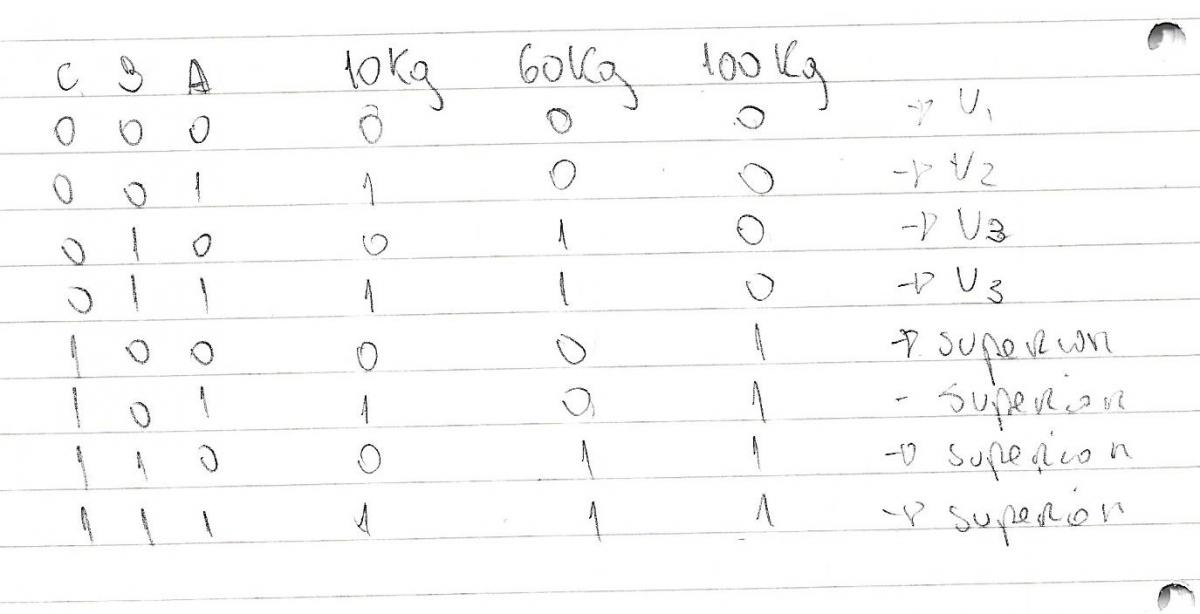 C B A 10Kg 60Kg 100Kg
0 0 0 0 0 0 → V1
0 0 1 1 0 0 → V2
0 1 0 0 1 0 → V3
0 1 1 1 1 0 → V3
1 0 0 0 0 1 → superior
1 0 1 1 0 1 - superior
1 1 0 0 1 1 → superior
1 1 1 1 1 1 → superior